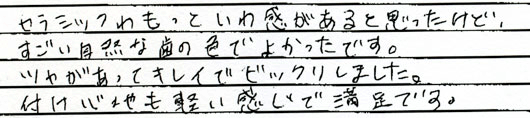 セラミックわもっといわ感があると思ったけど、
すごい自然な歯の色でよかったです。
ツヤがあってキレイでビックリしました。
付け心地も軽い感じで満足です。